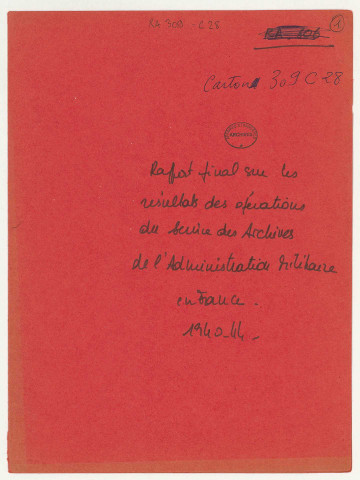 RA 300 - C 28
1
Carton 309 C 28
Rapport final sur les
résultats des opérations
du Service des Archives
de l'Administration Militaire
en France.
1940-44.